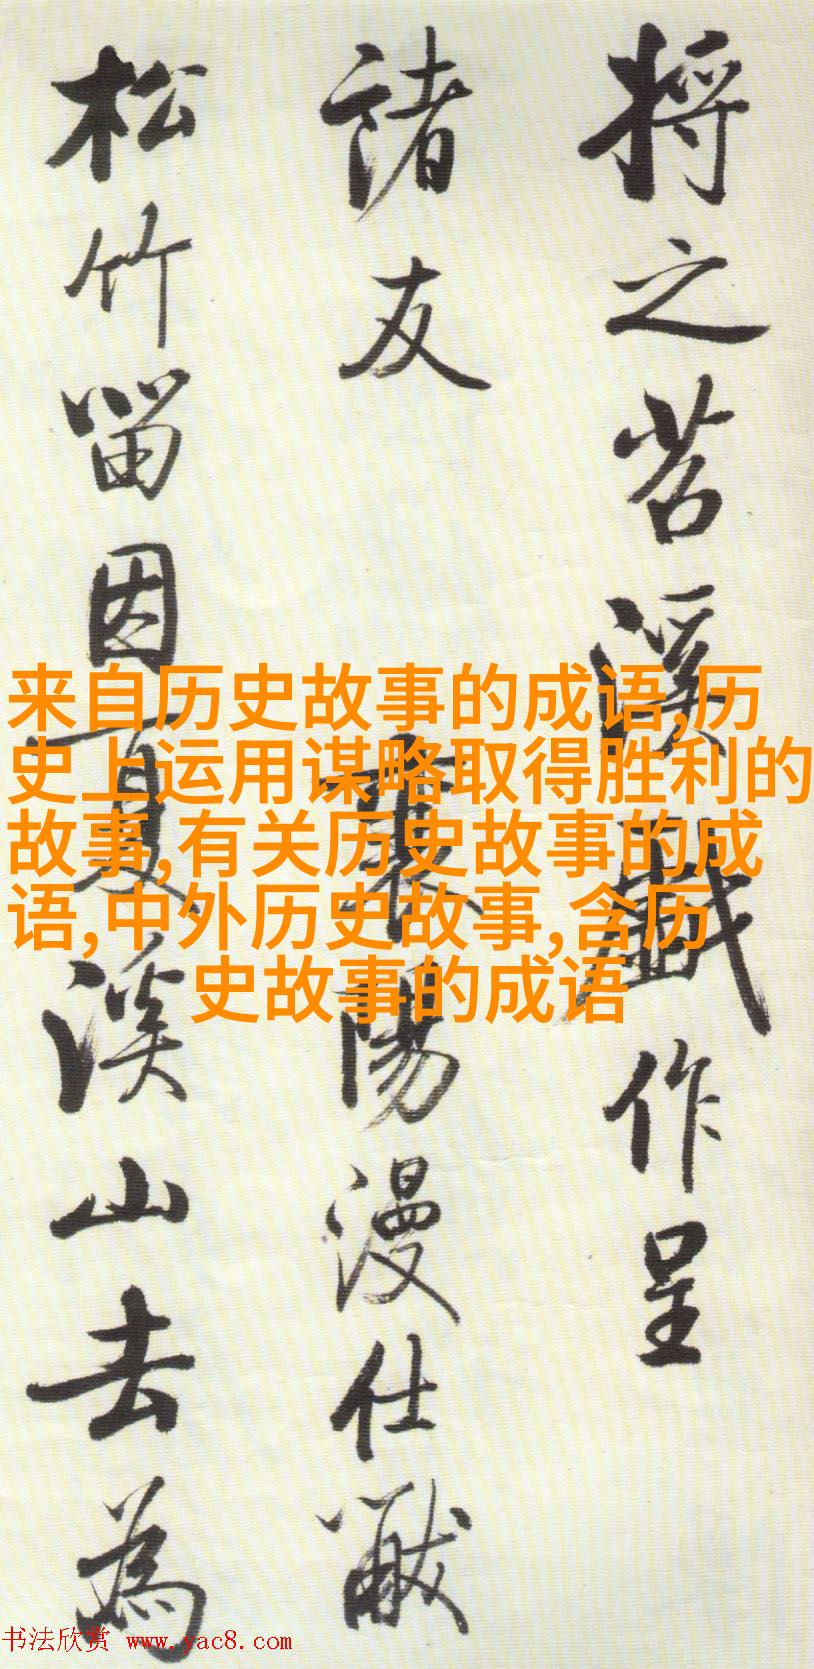 将之苕溪戲作呈
諸友
襄陽漫仕黻
松竹留因夏溪山去為
来自历史故事的成语,历
史上运用谋略取得胜利的
故事,有关历史故事的成
语,中外历史故事,含历
史故事的成语
书法欣赏 www.yac8.com